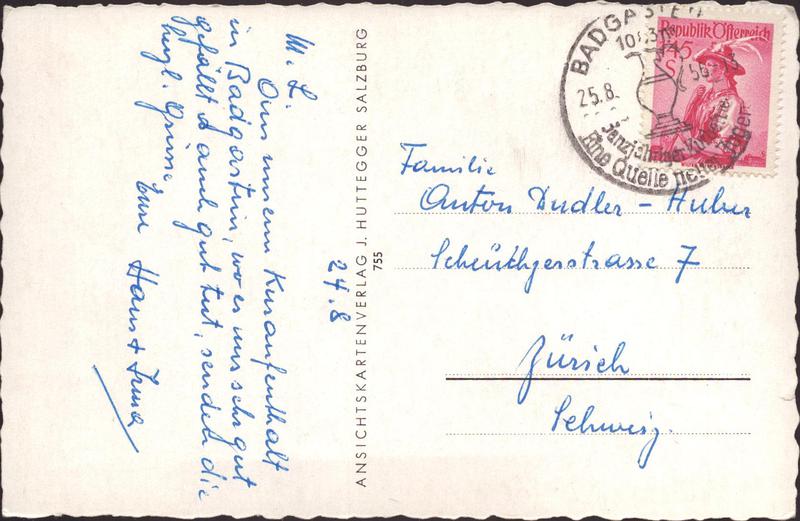 M. L.
Von unserm Kuraufenthalt
in Badgastein, wo es uns sehr gut
gefällt & auch gut tut, sendet die
herzl. Grüsse
Eure Hans & Irma
24.8
ANSICHTSKARTENVERLAG J. HUTTEGGER SALZBURG
755
BADGASTEIN
25.8.
Ganzjähriger Kurbetrieb
Eine Quelle neuer Jugend
Republik Österreich
1.45
S
Familie
Anton Dudler - Huber
Scheuchzerstrasse 7
Zürich
Schweiz.